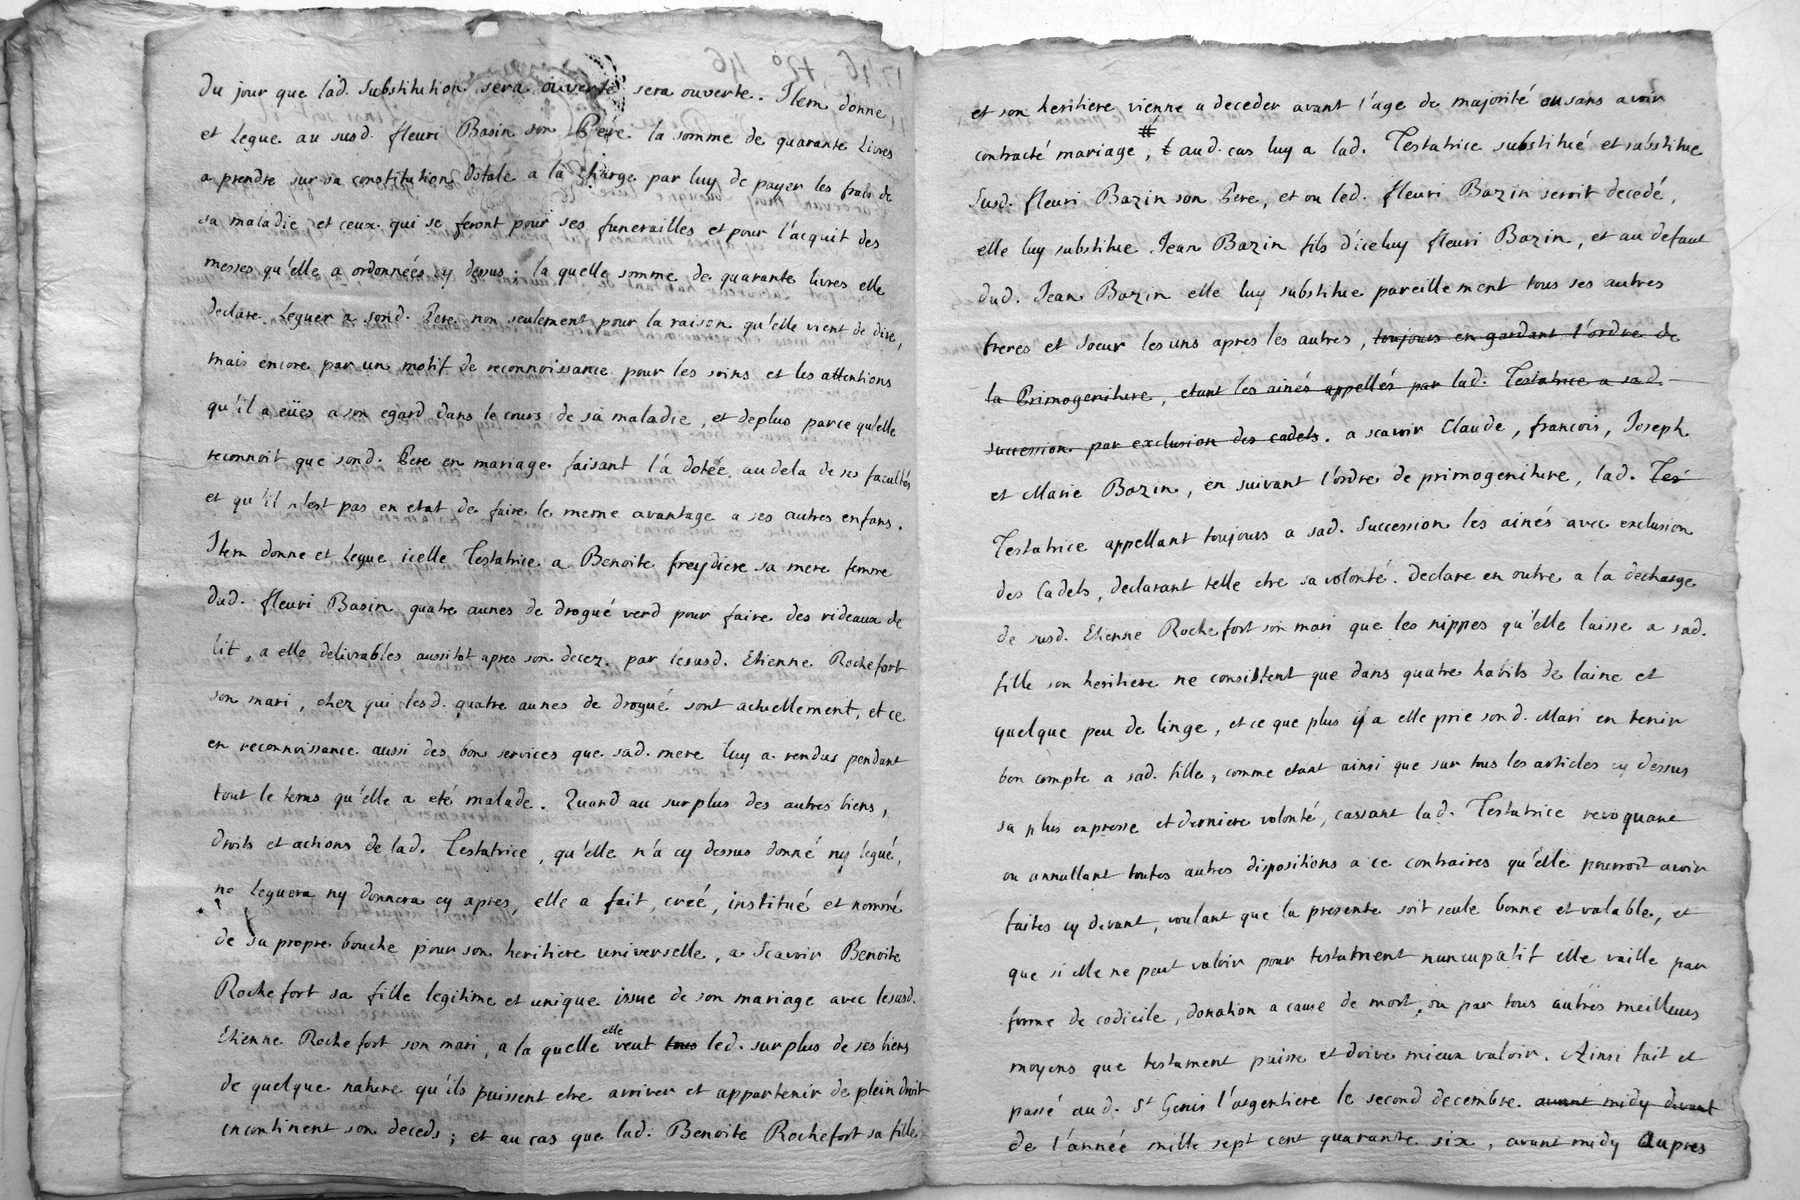 du jour que lad. substitution sera ouverte sera ouverte. Item donne
et legue au susd. fleuri Basin son Pere la somme de quarante livres
a prendre sur sa constitution dotale a la charge par luy de payer les frais de
sa maladie et ceux qui se feront pour ses funerailles et pour l'acquit des
messes qu'elle a ordonnées cy dessus; la quelle somme de quarante livres elle
declare leguer a sond. Pere non seulement pour la raison qu'elle vient de dire,
mais encore par un motif de reconnoissance pour les soins et les attentions
qu'il a eües a son egard dans le cours de sa maladie, et deplus parce qu'elle
reconnoit que sond. Pere en mariage faisant l'a dotée au dela de ses facultés
et qu'il n'est pas en etat de faire le meme avantage a ses autres enfans.
Item donne et legue icelle Testatrice a Benoite freydiere sa mere femme
dud. fleuri Basin quatre aunes de drogué verd pour faire des rideaux de
lit, a elle delivrables aussitot apres son decez par lesusd. Etienne Rochefort
son mari, chez qui lesd. quatre aunes de drogué sont actuellement, et ce
en reconnoissance aussi des bons services que sad. mere luy a rendus pendant
tout le tems qu'elle a eté malade. Quand au surplus des autres biens,
droits et actions de lad. Testatrice, qu'elle n'a cy dessus donné ny legué,
ne leguera ny donnera cy apres, elle a fait, créé, institué et nommé
de sa propre bouche pour son heritiere universelle, a scavoir Benoite
Rochefort sa fille legitime et unique issue de son mariage avec lesusd.
Etienne Rochefort son mari, a la quelle elle veut tous led. surplus de ses biens
de quelque nature qu'ils puissent etre arriver et appartenir de plein droit
incontinent son deceds; et au cas que lad. Benoite Rochefort sa fille
et son heritiere vienne a deceder avant l'age de majorité ou sans avoir
contracté mariage, # aud. cas luy a lad. Testatrice substitué et substitue
susd. fleuri Bazin son Pere, et ou led. fleuri Bazin seroit decedé,
elle luy substitue Jean Bazin fils d'iceluy fleuri Bazin, et au defaut
dud. Jean Bazin elle luy substitue pareillement tous ses autres
freres et soeur les uns apres les autres, toujours en gardant l'ordre de
la Primogeniture, etant les ainés appellés par lad. Testatrice a sad.
succession par exclusion des cadets. a scavoir Claude, francois, Joseph
et Marie Bazin, en suivant l'ordre de primogeniture, lad. Tes
Testatrice appellant toujours a sad. succession les ainés avec exclusion
des Cadets, declarant telle etre sa volonté. Declare en outre a la decharge
de susd. Etienne Rochefort son mari que les nippes qu'elle laisse a sad.
fille son heritiere ne consistent que dans quatre habits de laine et
quelque peu de linge, et ce que plus y a elle prie sond. Mari en tenir
bon compte a sad. fille, comme etant ainsi que sur tous les articles cy dessus
sa plus expresse et derniere volonté, cassant lad. Testatrice revoquant
ou annullant toutes autres dispositions a ce contraires qu'elle pourroit avoir
faites cy devant, voulant que la presente soit seule bonne et valable, et
que si elle ne peut valoir pour testament nuncupatif elle vaille par
forme de codicile, donation a cause de mort, ou par tous autres meilleurs
moyens que testament puisse et doive mieux valoir. Ainsi fait et
passé aud. St Genis l'argentiere le second decembre avant midy devant
de l'année mille sept cent quarante six, avant midy Aupres